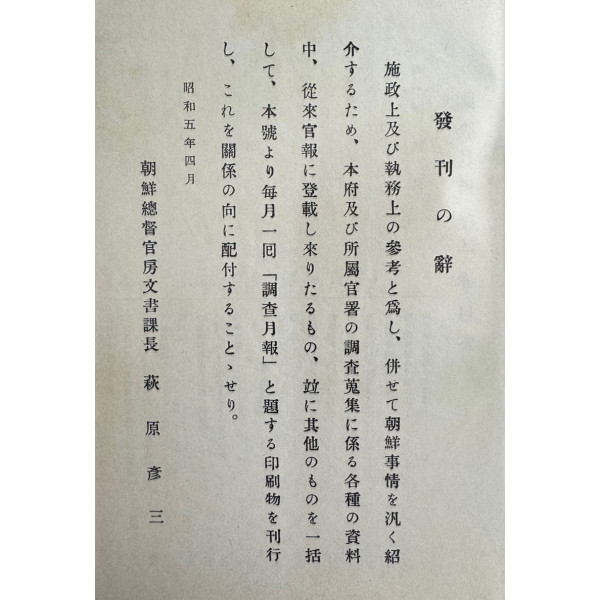 發刊の辭
施政上及び執務上の參考と爲し、併せて朝鮮事情を汎く紹
介するため、本府及び所屬官署の調査蒐集に係る各種の資料
中、從來官報に登載し來りたるもの、竝に其他のものを一括
して、本號より每月一囘「調査月報」と題する印刷物を刊行
し、これを關係の向に配付することゝせり。
昭和五年四月
朝鮮總督官房文書課長 萩原彥三